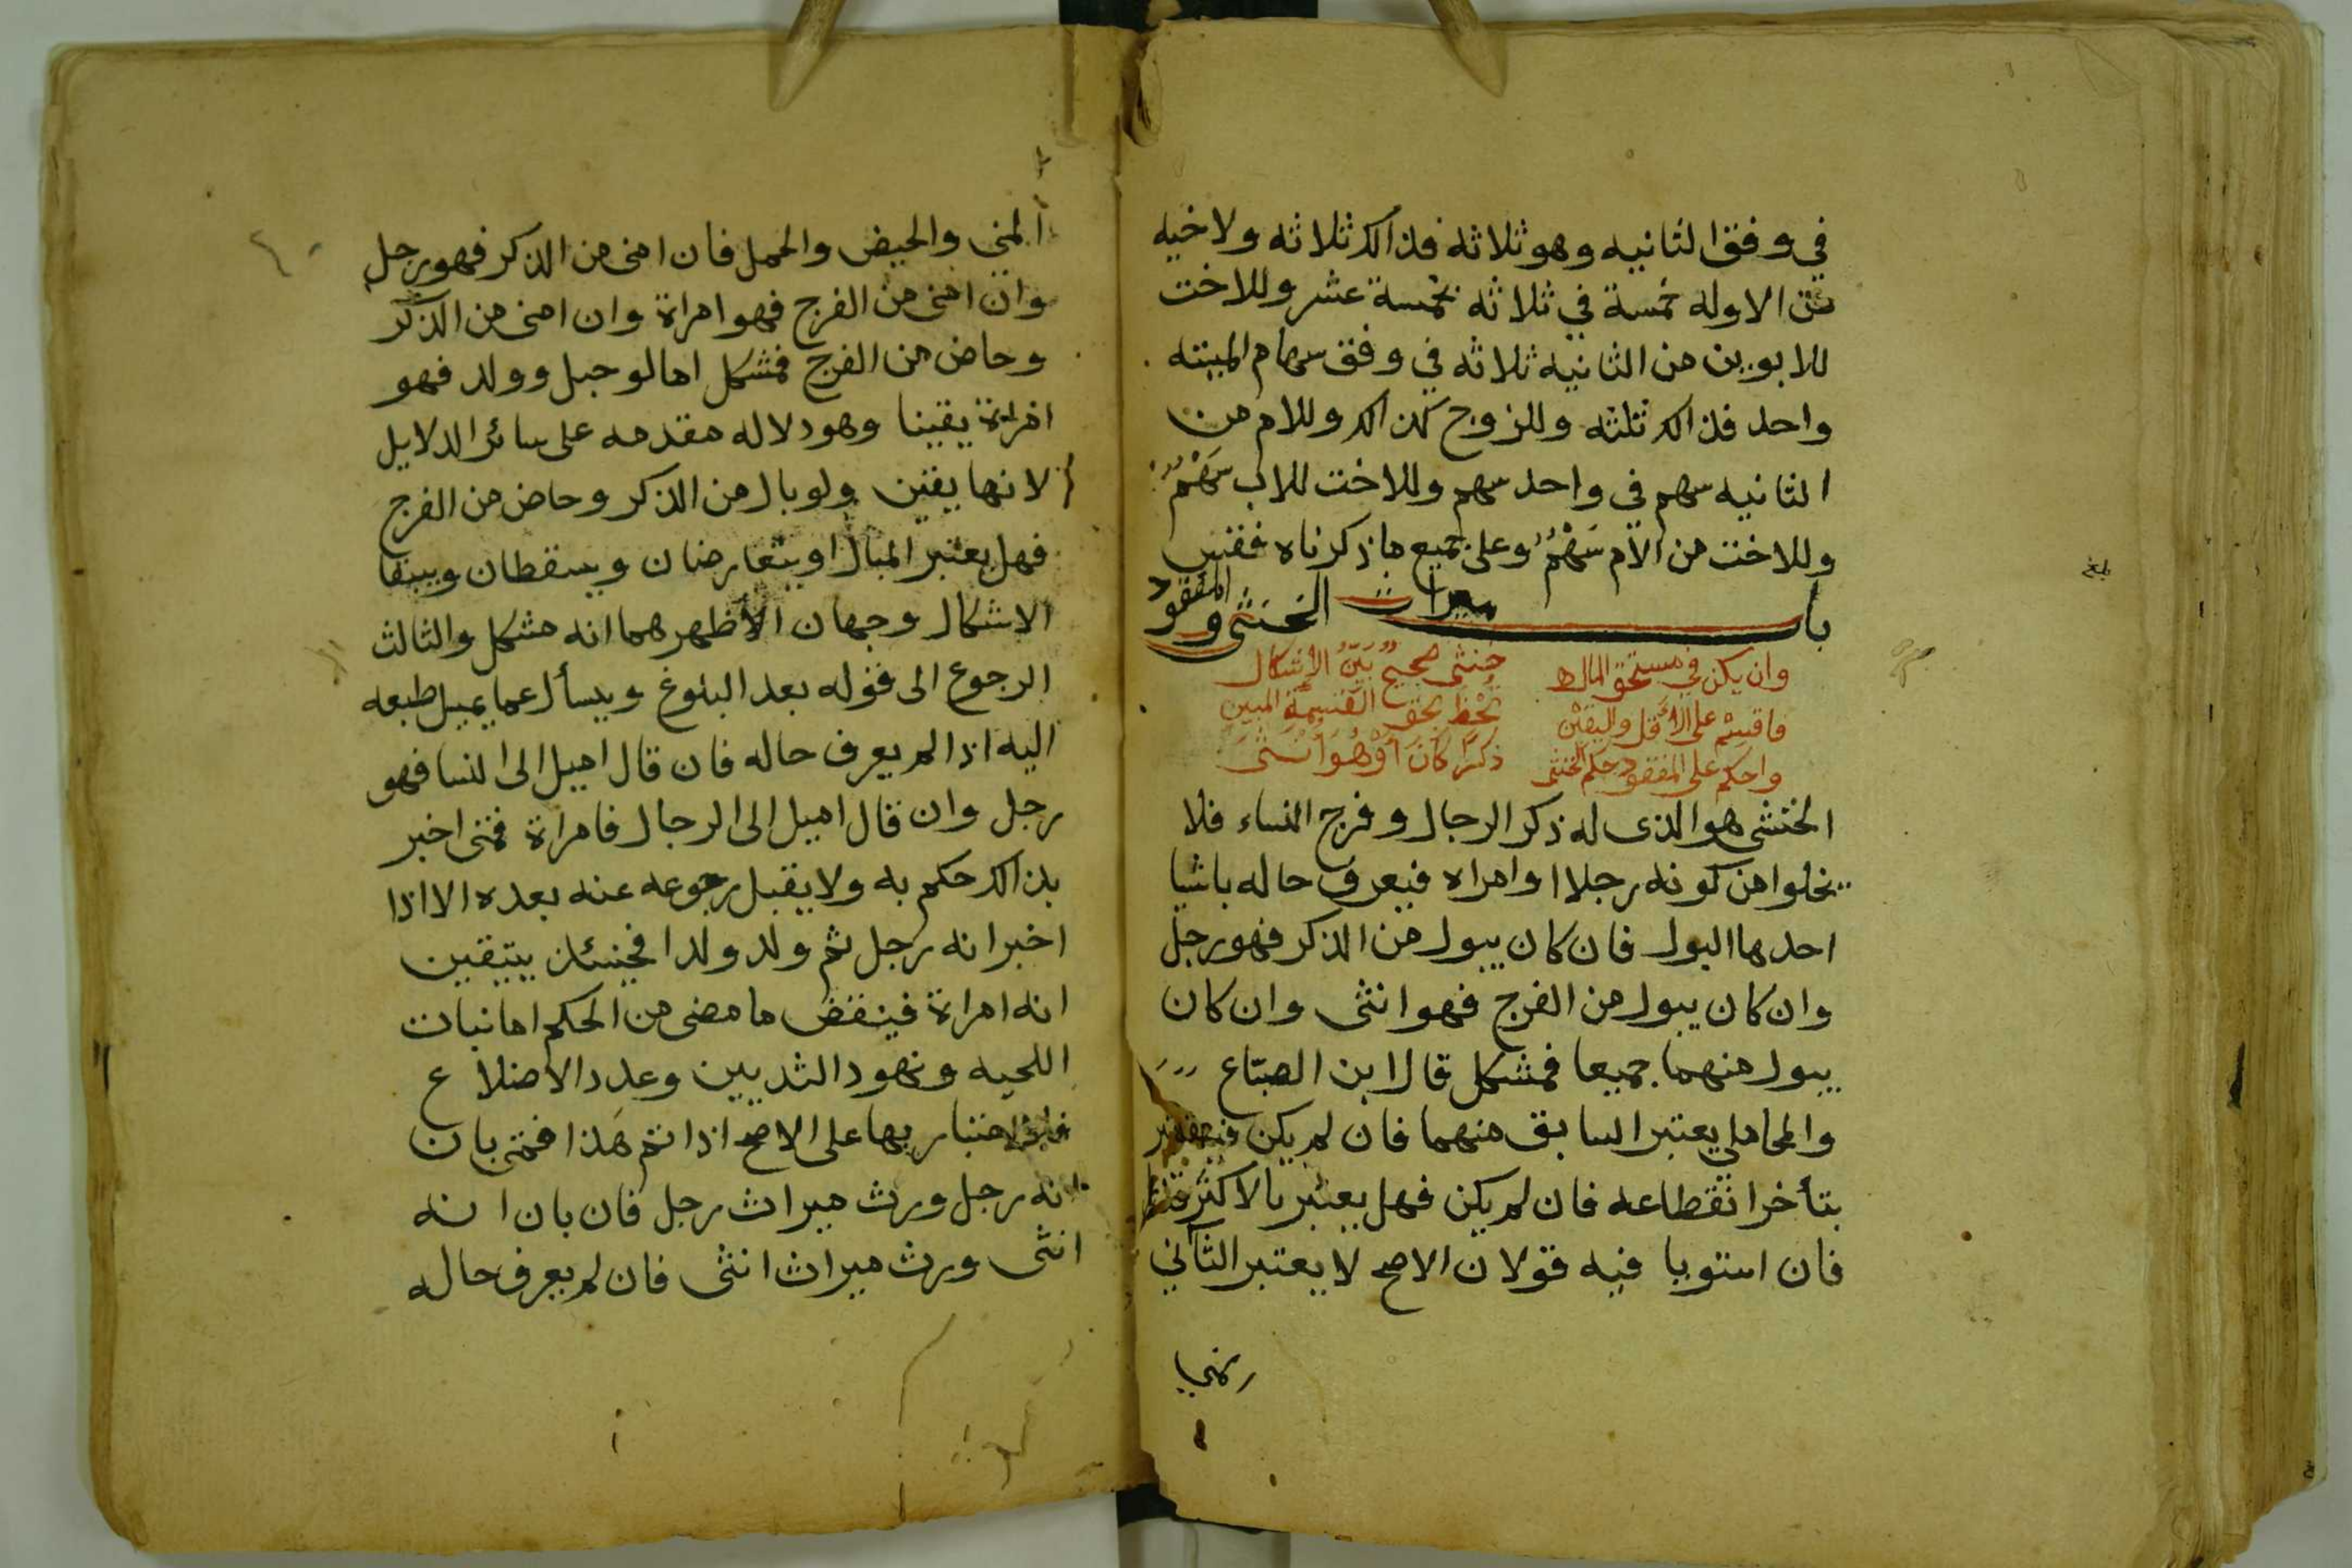 في وفق الثانيه وهو ثلاثه فذالك ثلاثه ولاخيه
من الاوله خمسة في ثلاثه بخمسة عشر وللاخت
للابوين من الثانيه ثلاثه في وفق سهام الميته
واحد فذالك ثلثه وللزوج كذالك وللام من
الثانيه سهم في واحد سهم وللاخت للاب سَهْمٌ
وللاخت من الأم سَهْمٌ وعلى جميع ما ذكرناه فقس
باب ميراث الخنثى والمفقود
وان يكن في مستحق المال خنثى صحيح بَيّنُ الإشكال
فاقسم على الأقل واليقين تحظ بحق القسمة المبين
واحكم على المفقود حكم الخنثى ذكرًا كَانَ أوْ هُوَ انْثَى
الخنثى هو الذى له ذكر الرجال وفرج النساء فلا
يخلوا من كونه رجلا او امراه فيعرف حاله باشيا
احدها البول فان كان يبول من الذكر فهو رجل
وان كان يبول من الفرج فهو انثى وان كان
يبول منهما جميعا فمشكل قال ابن الصبّاغ
والمحاملي يعتبر السابق منهما فان لم يكن فيعتبر
بتأخر انقطاعه فان لم يكن فهل يعتبر بالاكثر
فان استويا فيه قولان الاصح لا يعتبر الثاني
المني والحيض والحمل فان امنى من الذكر فهو رجل
وان امنى من الفرج فهو امراة وان امنى من الذكر
وحاض من الفرج فمشكل اما لو حبل وولد فهو
امراة يقينا وهو دلاله مقدمه على سائر الدلايل
لانها يقين ولو بال من الذكر وحاض من الفرج
فهل يعتبر المبال او يتعارضان ويسقطان ويبقا
الاشكال وجهان الأظهرهما انه مشكل والثالث
الرجوع الى قوله بعد البلوغ ويسأل عما يميل طبعه
اليه اذا لم يعرف حاله فان قال اميل الى النسا فهو
رجل وان قال اميل الى الرجال فامراة فمتى اخبر
بذالك حكم به ولا يقبل رجوعه عنه بعده الا اذا
اخبر انه رجل ثم ولد ولدا فحينئذ يتيقين
انه امراة فينقض ما مضى من الحكم اما نبات
اللحيه ونهود الثديين وعدد الاضلاع
فلا اعتبار بها على الاصح اذا تم هَذا فمتى بان
انه رجل ورث ميراث رجل فان بان انه
انثى ورث ميراث انثى فان لم يعرف حاله